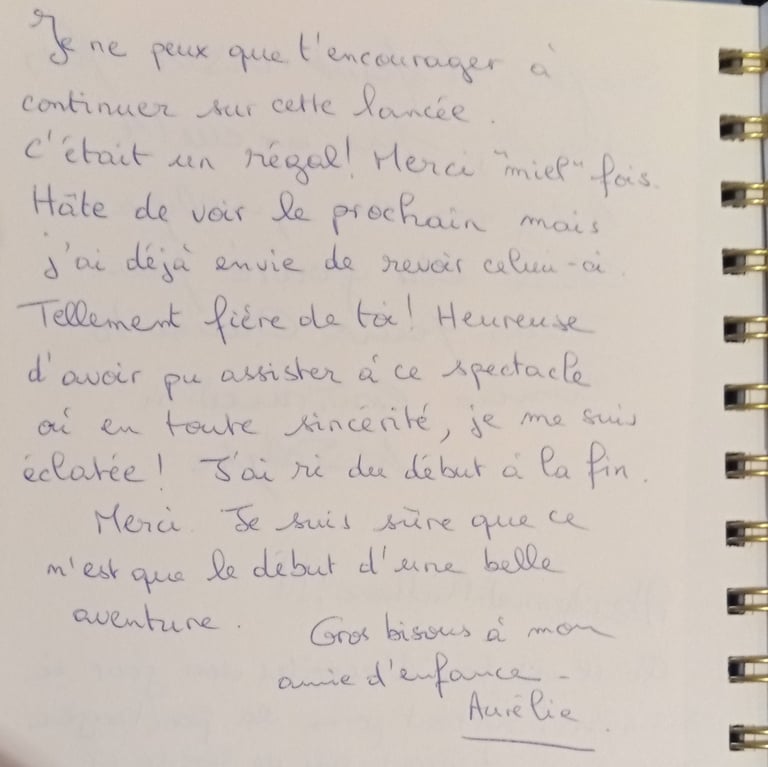 Je ne peux que t'encourager à
continuer sur cette lancée.
C'était un régal! Merci "miel" fois.
Hâte de voir le prochain mais
j'ai déjà envie de revoir celui-ci.
Tellement fière de toi! Heureuse
d'avoir pu assister à ce spectacle
où en toute sincérité, je me suis
éclatée! J'ai ri du début à la fin.
Merci. Je suis sûre que ce
n'est que le début d'une belle
aventure. Gros bisous à mon
amie d'enfance -
Aurélie.